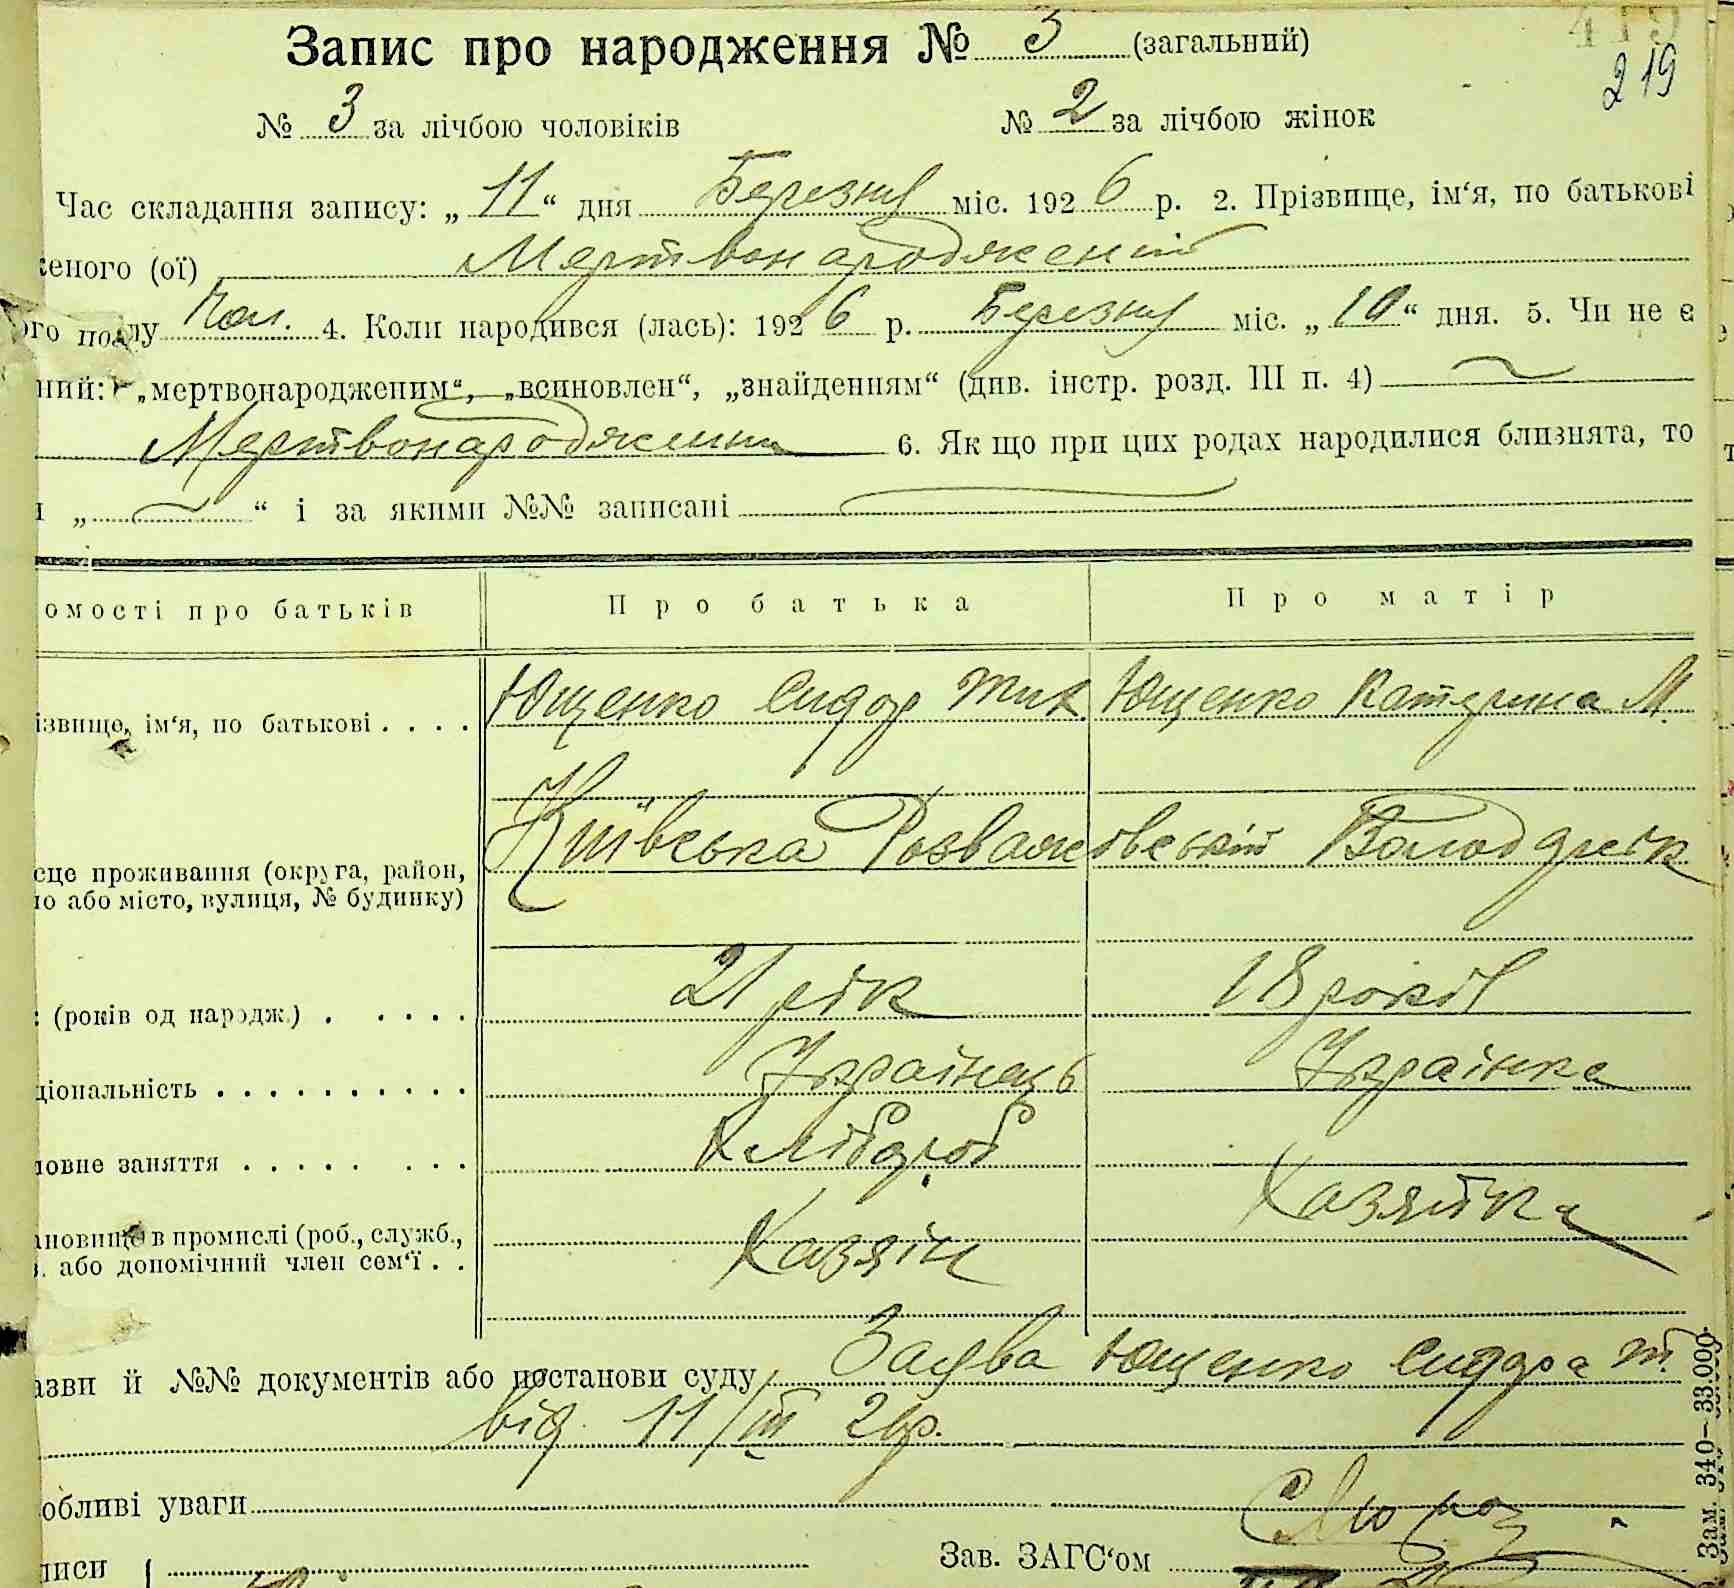 Запис про народження № 3 (загальний)
419
219
№ 3 за лічбою чоловіків № 2 за лічбою жінок
Час складання запису: „11“ дня Березня міс. 1926 р. 2. Прізвище, ім‘я, по батькові
женого (ої) Мертвонароджений
ого полу Чол. 4. Коли народився (лась): 1926 р. Березня міс. „10“ дня. 5. Чи не є
ний: „мертвонародженим“, „всиновлен“, „знайденням“ (див. інстр. розд. III п. 4)
Мертвонароджений 6. Як що при цих родах народилися близнята, то
и „ “ і за якими №№ записані
омості про батьків Про батька Про матір
ізвище, ім‘я, по батькові . . . . Ющенко Сидор Тих. Ющенко Катерина М.
Київська Розважівський Володарка
сце проживання (округа, район,
ло або місто, вулиця, № будинку)
: (років од народж.) . . . . . 21 рік 18 років
ціональність . . . . . . . . . . Українець Українка
ловне заняття . . . . . . . . Хлібороб
Хазяйка
ановище в промислі (роб., служб.,
. або допомічний член сем‘ї . . Хазяїн
азви й №№ документів або постанови суду Заява Ющенко Сидора Т.
від 11/III 26р.
обливі уваги
писи Зав. ЗАГС‘ом
Зам. 340–33.000